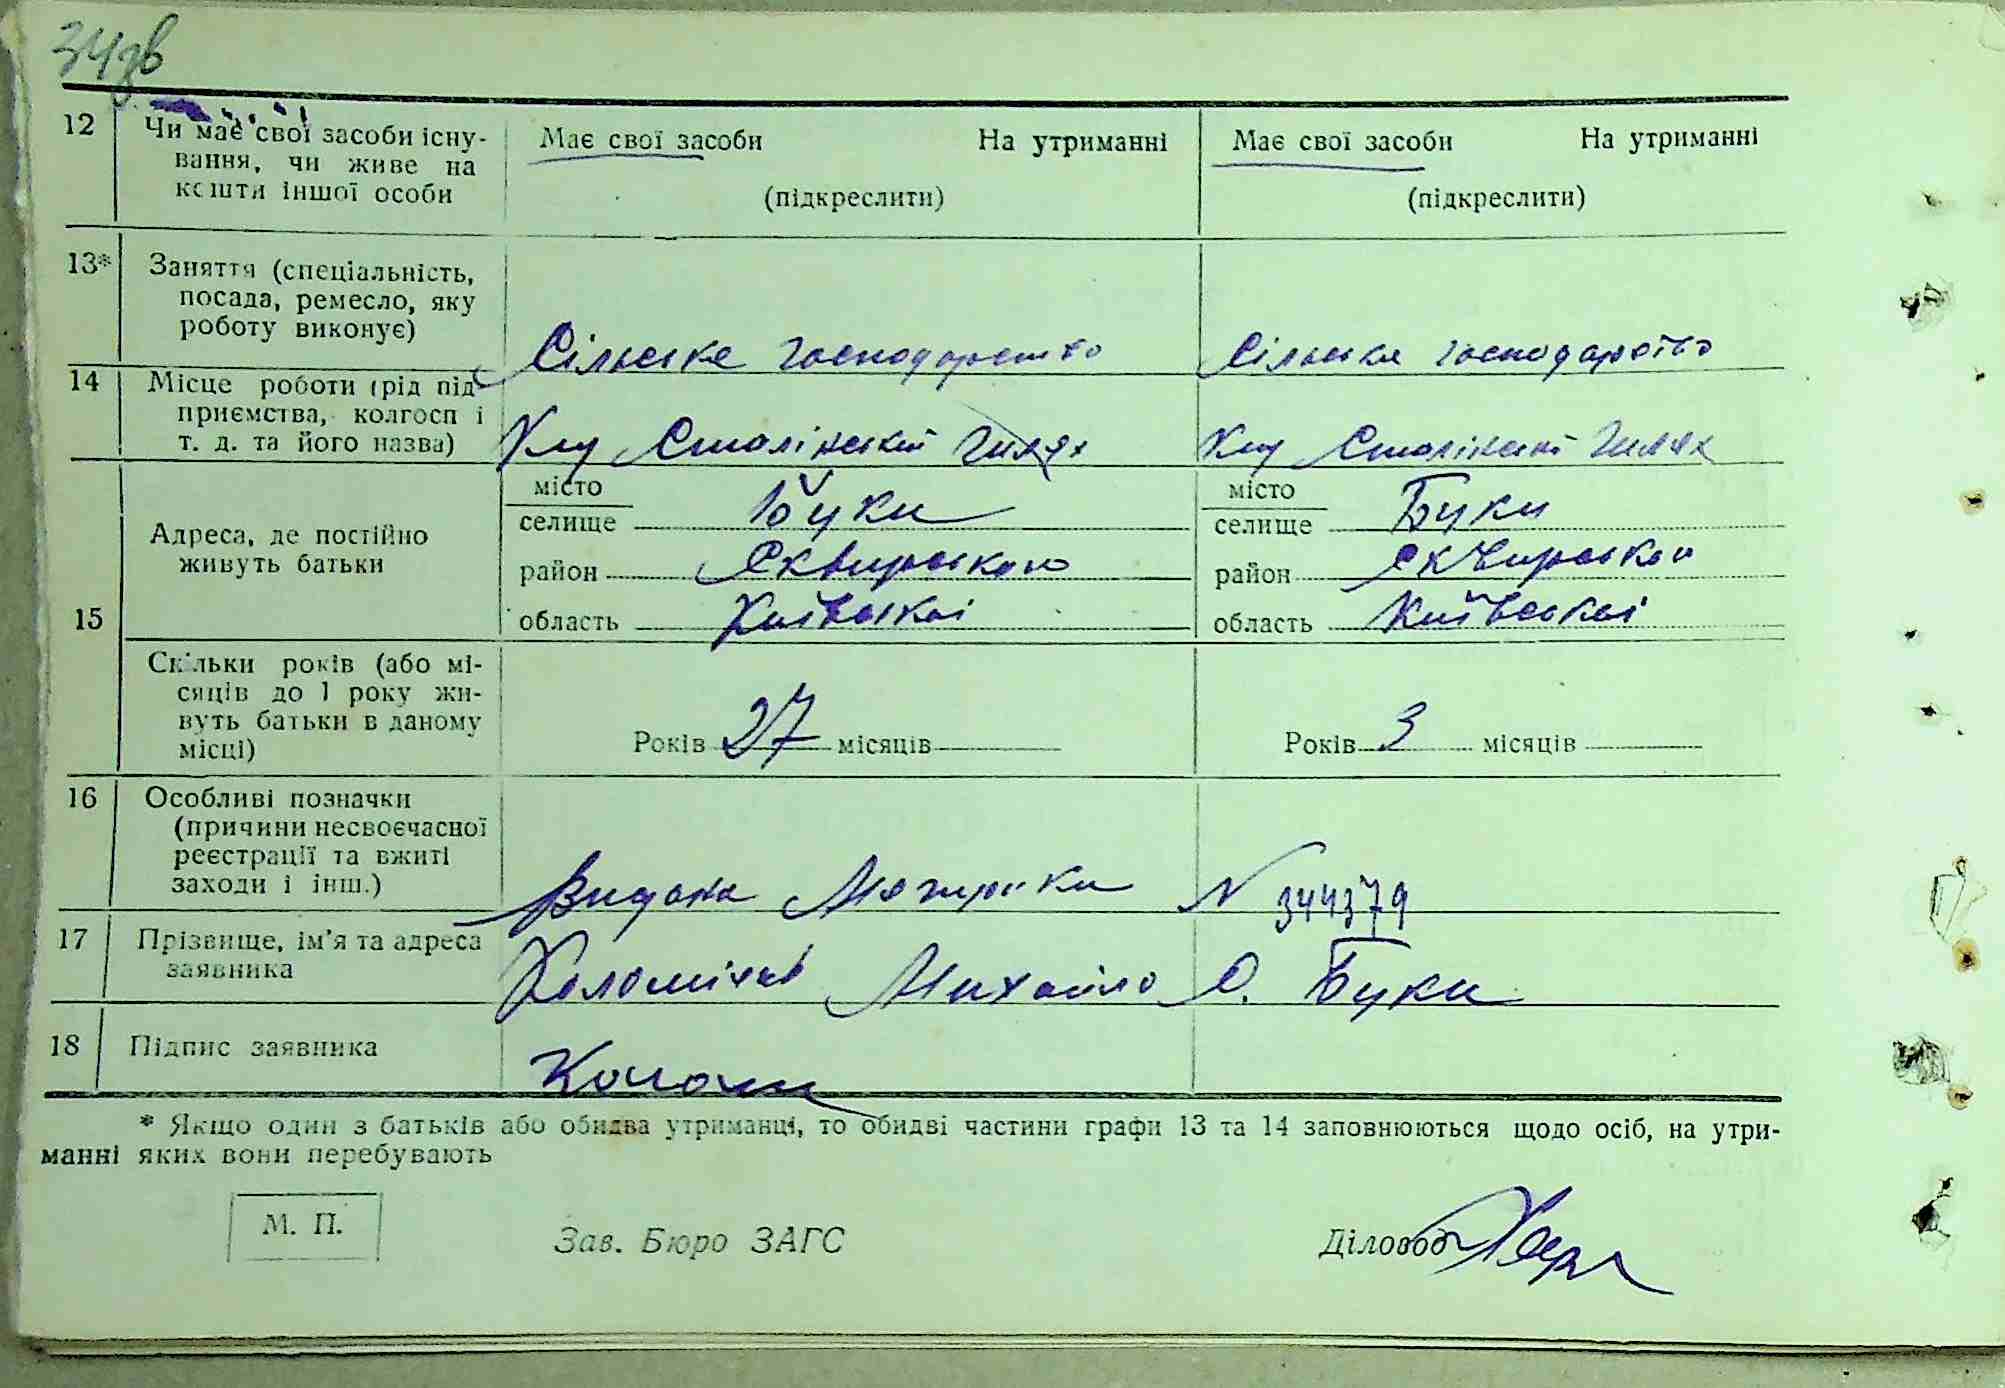 34зв
12 Чи має свої засоби існу- Має свої засоби На утриманні Має свої засоби На утриманні
вання, чи живе на
кошти іншої особи (підкреслити) (підкреслити)
13* Заняття (спеціальність,
посада, ремесло, яку
роботу виконує) Сільське господарство Сільське господарство
14 Місце роботи (рід під-
приємства, колгосп і
т. д. та його назва) Сталінський шлях Сталінський шлях
місто Буки місто Буки
селище селище
15 Адреса, де постійно
живуть батьки район Сквирського район Сквирського
область Київської область Київської
Скільки років (або мі-
сяців до 1 року жи-
вуть батьки в даному Років 27 місяців Років 3 місяців
місці)
16 Особливі позначки
(причини несвоєчасної
реєстрації та вжиті
заходи і інш.) Видана N 344379
17 Прізвище, ім'я та адреса
заявника Михайло с. Буки
18 Підпис заявника
* Якщо один з батьків або обидва утриманці, то обидві частини графи 13 та 14 заповнюються щодо осіб, на утри-
манні яких вони перебувають
М. П. Зав. Бюро ЗАГС Діловод